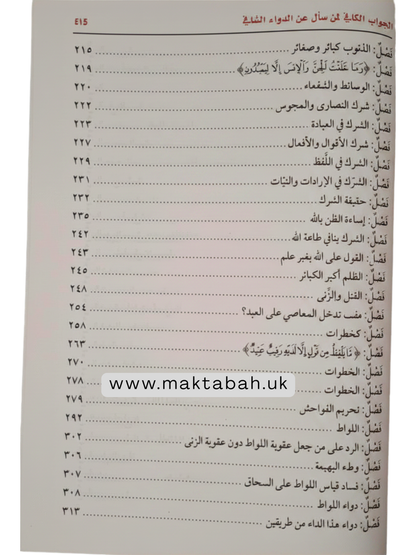 الجواب الكافي لمن سأل عن الدواء الشافي ٤١٥
فَصْلٌ: الذنوب كبائر وصغائر ٢١٥
فَصْلٌ: ﴿وَمَا خَلَقْتُ الْجِنَّ وَالْإِنسَ إِلَّا لِيَعْبُدُونِ﴾ ٢١٩
فَصْلٌ: الوسائط والشفعاء ٢٢٠
فَصْلٌ: شرك النصارى والمجوس ٢٢٢
فَصْلٌ: الشرك في العبادة ٢٢٣
فَصْلٌ: شرك الأقوال والأفعال ٢٢٧
فَصْلٌ: الشرك في اللَّفظ ٢٢٩
فَصْلٌ: الشّرك في الإرادات والنيّات ٢٣١
فَصْلٌ: حقيقة الشرك ٢٣٢
فَصْلٌ: إساءة الظن بالله ٢٣٥
فَصْلٌ: الشرك ينافي طاعة الله ٢٤٢
فَصْلٌ: القول على الله بغير علم ٢٤٣
فَصْلٌ: الظلم أكبر الكبائر ٢٤٥
فَصْلٌ: القتل والزَّنى ٢٤٨
فَصْلٌ: تدخل المعاصي على العبد؟ ٢٥٤
فَصْلٌ: كخطرات ٢٥٨
فَصْلٌ: ﴿مَا يَلْفِظُ مِن قَوْلٍ إِلَّا لَدَيْهِ رَقِيبٌ عَتِيدٌ﴾ ٢٦٣
فَصْلٌ: الخطوات ٢٧٠
فَصْلٌ: الخطوات ٢٧٨
www.maktabah.uk
فَصْلٌ: تحريم الفواحش ٢٧٩
فَصْلٌ: اللواط ٢٩٢
فَصْلٌ: الرد على من جعل عقوبة اللواط دون عقوبة الزنى ٣٠٢
فَصْلٌ: وطء البهيمة ٣٠٦
فَصْلٌ: فساد قياس اللواط على السحاق ٣٠٧
فَصْلٌ: دواء اللواط ٣٠٨
فَصْلٌ: دواء هذا الداء من طريقين ٣١٣